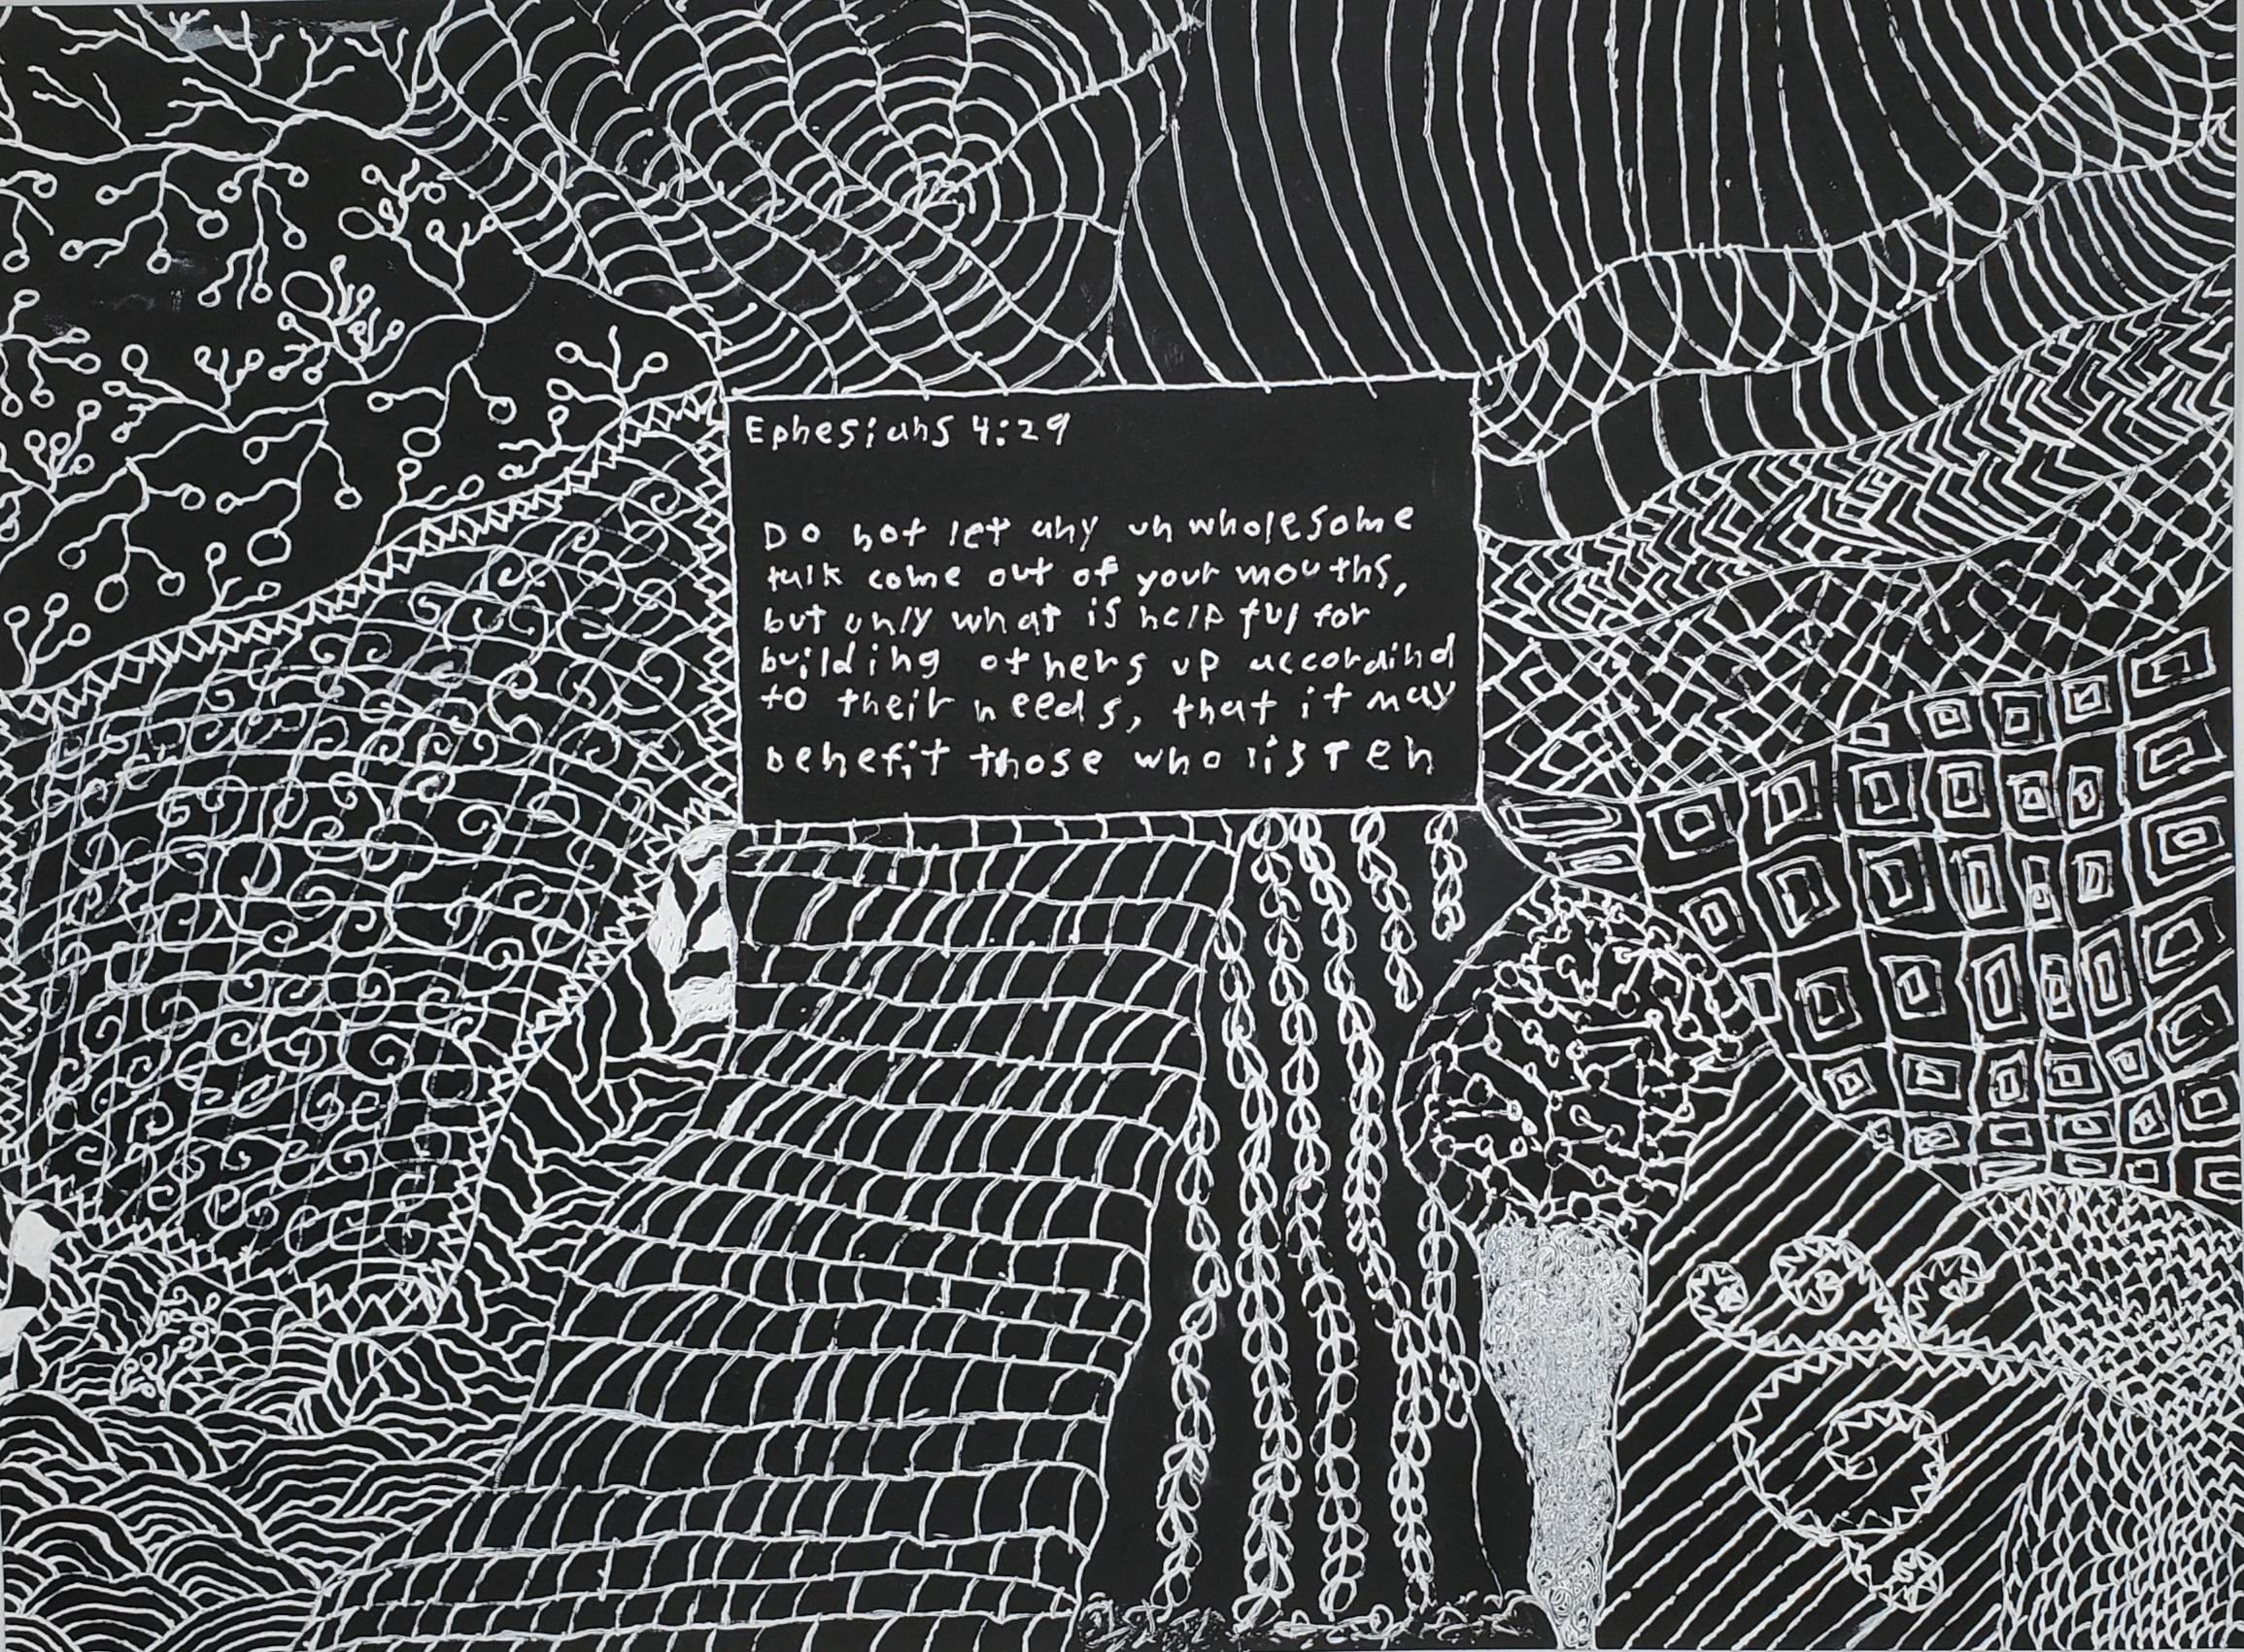 Ephesians 4:29
Do not let any unwholesome
talk come out of your mouths,
but only what is helpful for
building others up accordind
to their needs, that it may
benefit those who listen